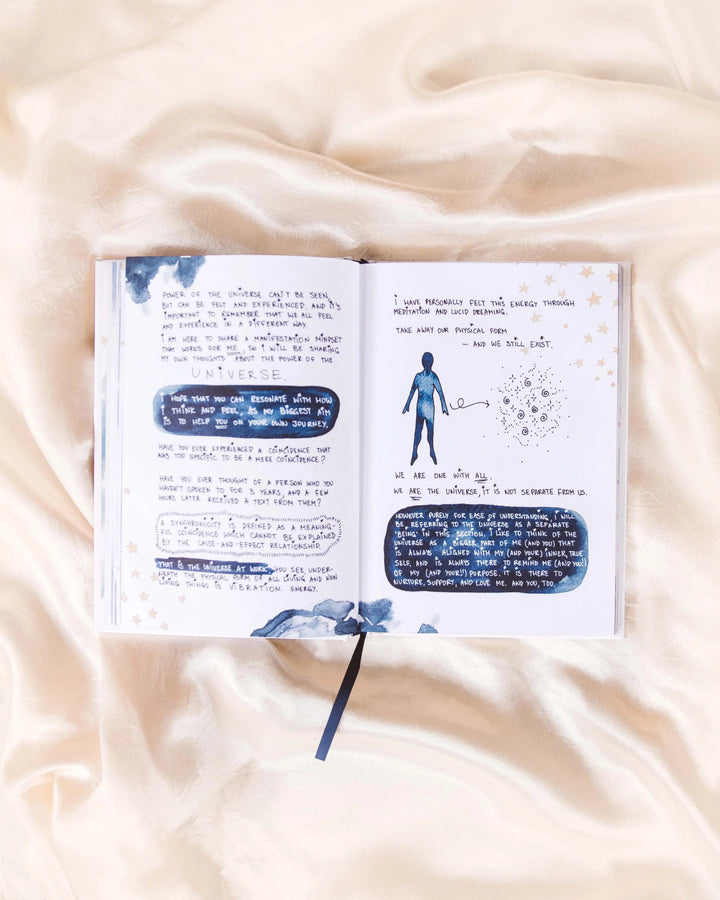 POWER OF THE UNIVERSE CAN'T BE SEEN,
BUT CAN BE FELT AND EXPERIENCED. AND IT'S
IMPORTANT TO REMEMBER THAT WE ALL FEEL
AND EXPERIENCE IN A DIFFERENT WAY.
I AM HERE TO SHARE A MANIFESTATION MINDSET
THAT WORKS FOR ME, SO I WILL BE SHARING
MY OWN THOUGHTS ABOUT THE POWER OF THE
UNIVERSE.
I HOPE THAT YOU CAN RESONATE WITH HOW
I THINK AND FEEL, AS MY BIGGEST AIM
IS TO HELP YOU ON YOUR OWN JOURNEY.
HAVE YOU EVER EXPERIENCED A COINCIDENCE THAT
WAS TOO SPECIFIC TO BE A MERE COINCIDENCE?
HAVE YOU EVER THOUGHT OF A PERSON WHO YOU
HAVEN'T SPOKEN TO FOR 3 YEARS, AND A FEW
HOURS LATER RECEIVED A TEXT FROM THEM?
A SYNCHRONICITY IS DEFINED AS A MEANING-
FUL COINCIDENCE WHICH CANNOT BE EXPLAINED
BY THE CAUSE-AND-EFFECT RELATIONSHIP.
THAT IS THE UNIVERSE AT WORK. YOU SEE, UNDER-
NEATH THE PHYSICAL FORM OF ALL LIVING AND NON
LIVING THINGS IS VIBRATION. ENERGY.
I HAVE PERSONALLY FELT THIS ENERGY THROUGH
MEDITATION AND LUCID DREAMING.
TAKE AWAY OUR PHYSICAL FORM
- AND WE STILL EXIST.
WE ARE ONE WITH ALL.
WE ARE THE UNIVERSE, IT IS NOT SEPARATE FROM US.
HOWEVER PURELY FOR EASE OF UNDERSTANDING, I WILL
BE REFERRING TO THE UNIVERSE AS A SEPARATE
'BEING' IN THIS SECTION. I LIKE TO THINK OF THE
UNIVERSE AS A BIGGER PART OF ME (AND YOU) THAT
IS ALWAYS ALIGNED WITH MY (AND YOUR) INNER, TRUE
SELF, AND IS ALWAYS THERE TO REMIND ME (AND YOU!)
OF MY (AND YOUR!!) PURPOSE. IT IS THERE TO
NURTURE, SUPPORT, AND LOVE ME. AND YOU, TOO.